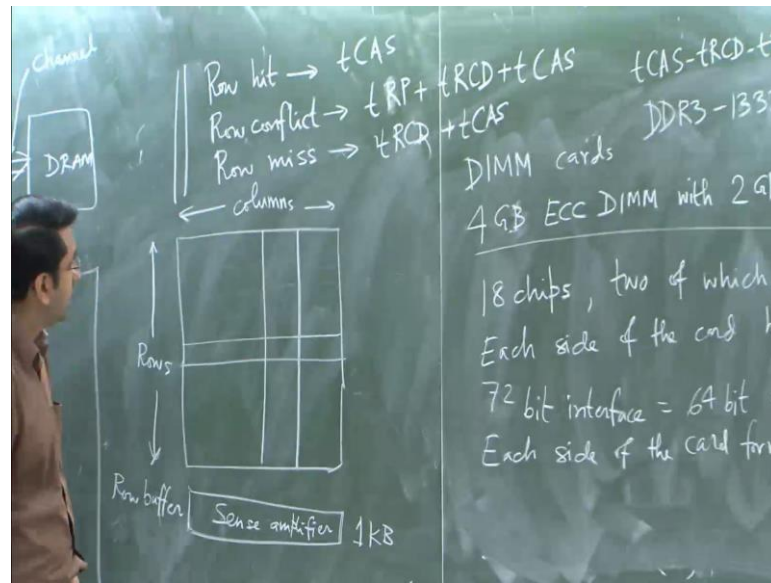 channel
DRAM
Row hit → tCAS
Row conflict → tRP + tRCD + tCAS
Row miss → tRCD + tCAS
← columns →
Rows
Row buffer
Sense amplifier
1KB
tCAS-tRCD-t
DDR3-1333
DIMM cards
4GB ECC DIMM with 2G
18 chips, two of which
Each side of the card h
72 bit interface = 64 bit
Each side of the card for